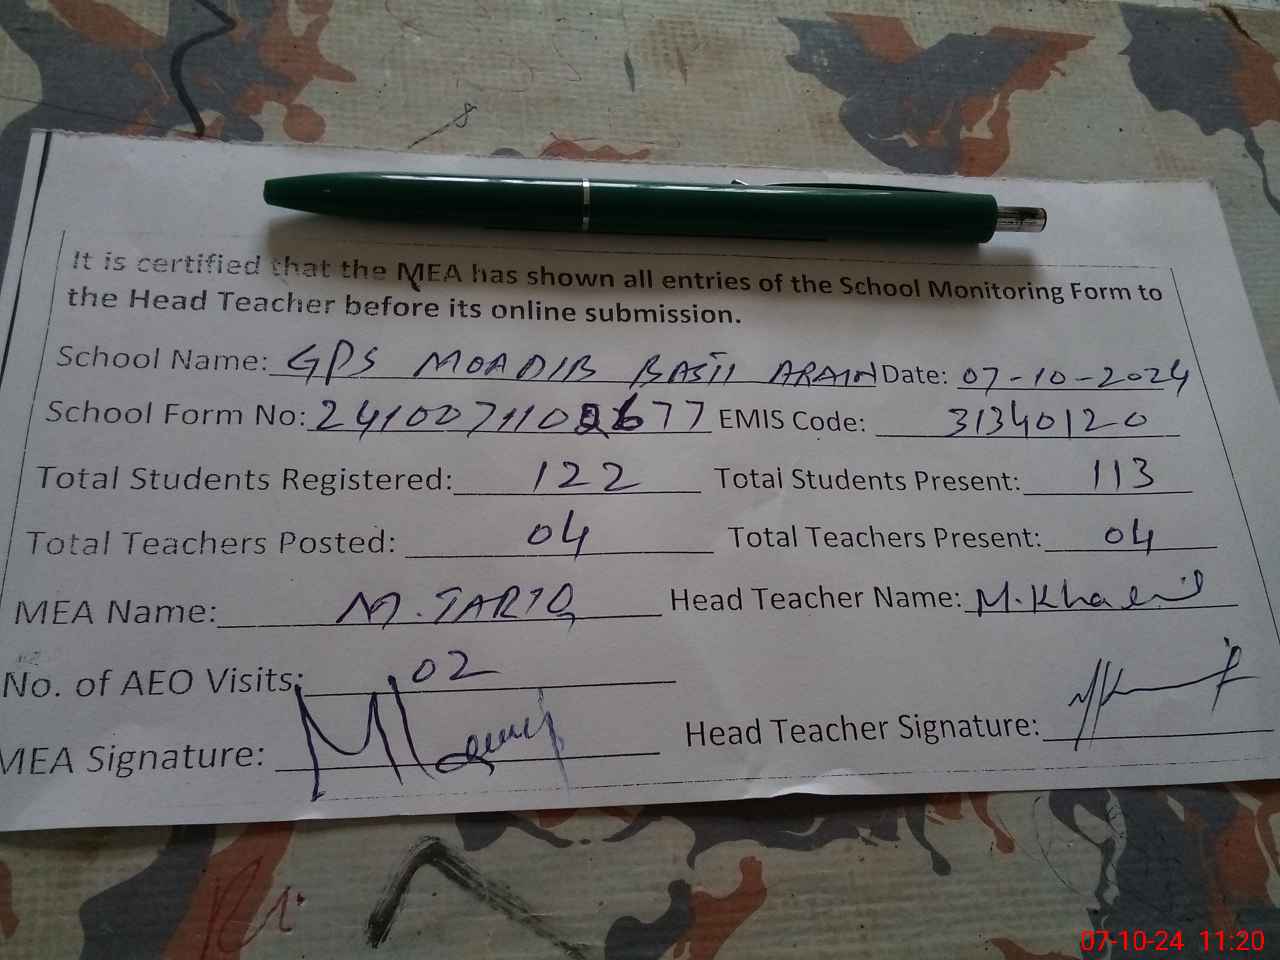 It is certified that the MEA has shown all entries of the School Monitoring Form to
the Head Teacher before its online submission.
School Name: GPS MOADIB BASTI ARAIN Date: 07-10-2024
School Form No: 241007110 677 EMIS Code: 31340120
Total Students Registered: 122 Total Students Present: 113
Total Teachers Posted: 04 Total Teachers Present: 04
MEA Name: M. TARIQ Head Teacher Name: M.
No. of AEO Visits: 02
MEA Signature: Head Teacher Signature:
07-10-24 11:20